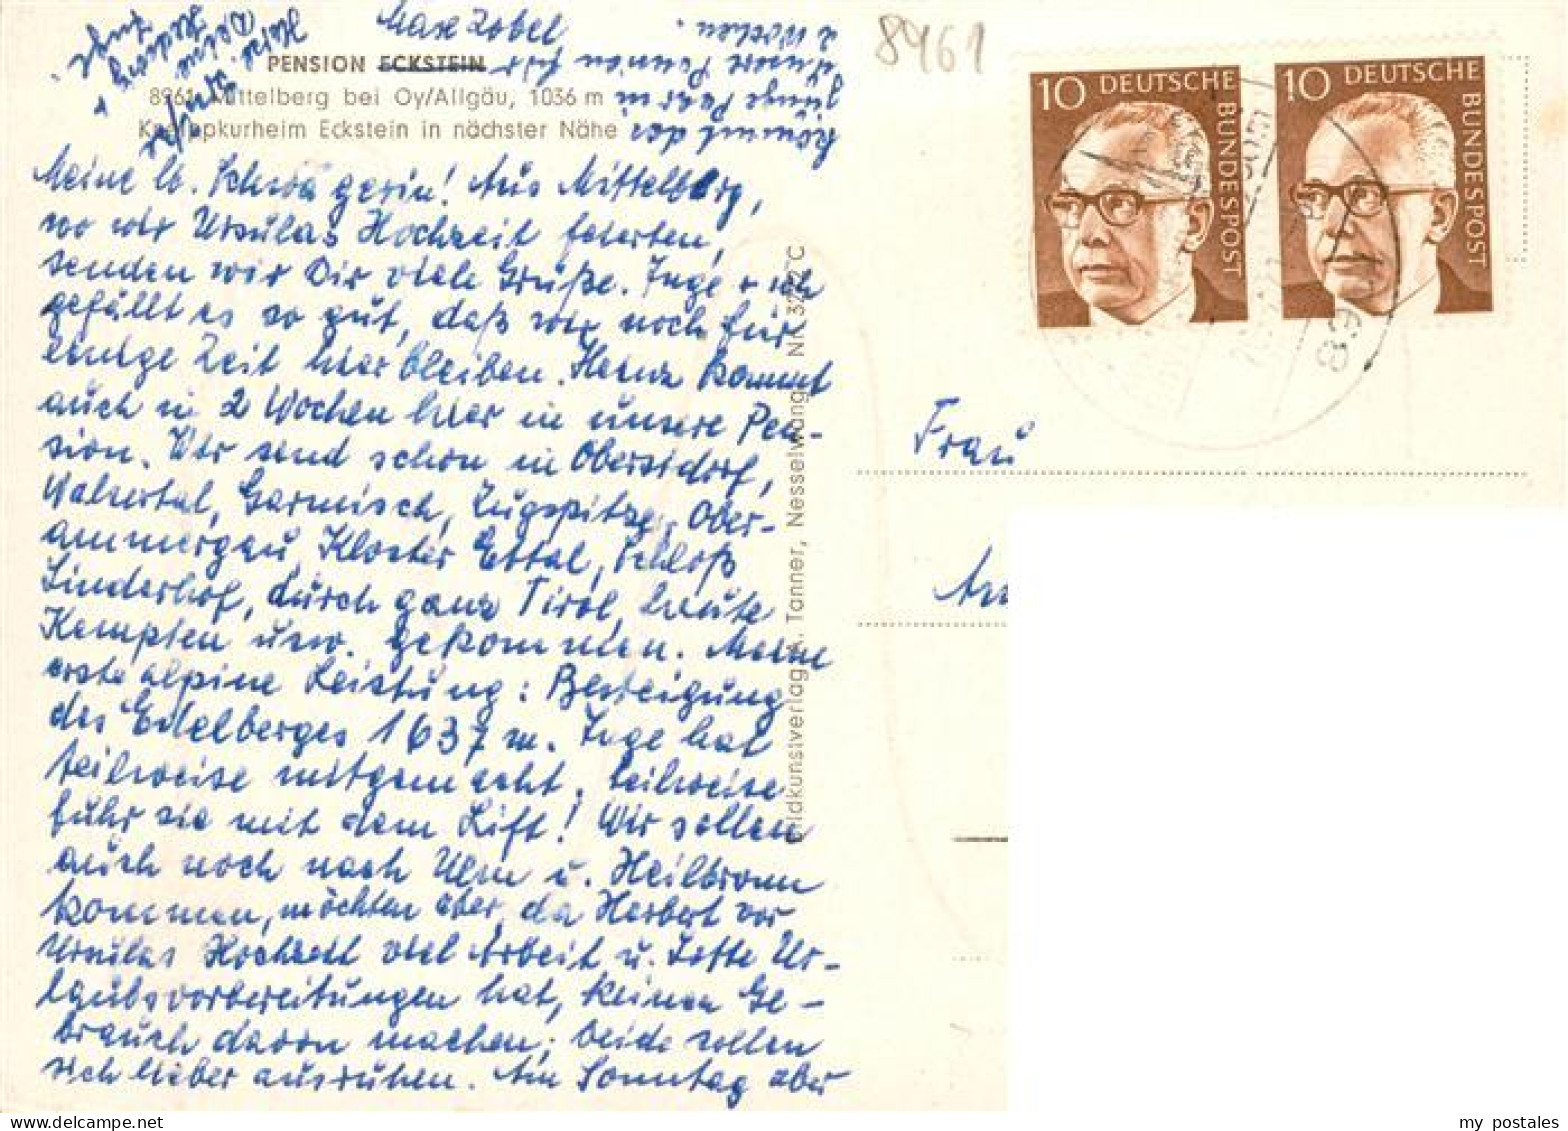 Max Zobel
PENSION ECKSTEIN
8961 Mittelberg bei Oy/Allgäu, 1036 m
Kneippkurheim Eckstein in nächster Nähe
Meine lb. Schwägerin! Aus Mittelberg,
wo wir Ursulas Hochzeit feierten,
senden wir Dir viele Grüße. Inge + ich
gefällt es so gut, daß wir noch für
einige Zeit hier bleiben. Heinz kommt
auch in 2 Wochen hier in unsere Pen-
sion. Wir sind schon in Oberstdorf,
Walsertal, Garmisch, Zugspitze, Ober-
ammergau, Kloster Ettal, Schloß
Linderhof, durch ganz Tirol, heute
Kempten usw. gekommen. Meine
erste alpine Leistung: Besteigung
des Edelberges 1637 m. Inge hat
teilweise mitgemacht, teilweise
fuhr sie mit dem Lift! Wir sollen
auch noch nach Ulm u. Heilbronn
kommen, möchten aber, da Herbert vor
Ursulas Hochzeit viel Arbeit u. Jette Ur-
laubsvorbereitungen hat, keinen Ge-
brauch davon machen; beide sollen
sich lieber ausruhen. Am Sonntag aber
kommt das
junge Paar in
unsere Pension für
2 Wochen.
Herzl.
Deine
Hedwig +
Inge
Bildkunstverlag A. Tanner, Nesselwang Nr. 3292 C
8961
10 DEUTSCHE
BUNDESPOST
10 DEUTSCHE
BUNDESPOST
89
Frau
my postales